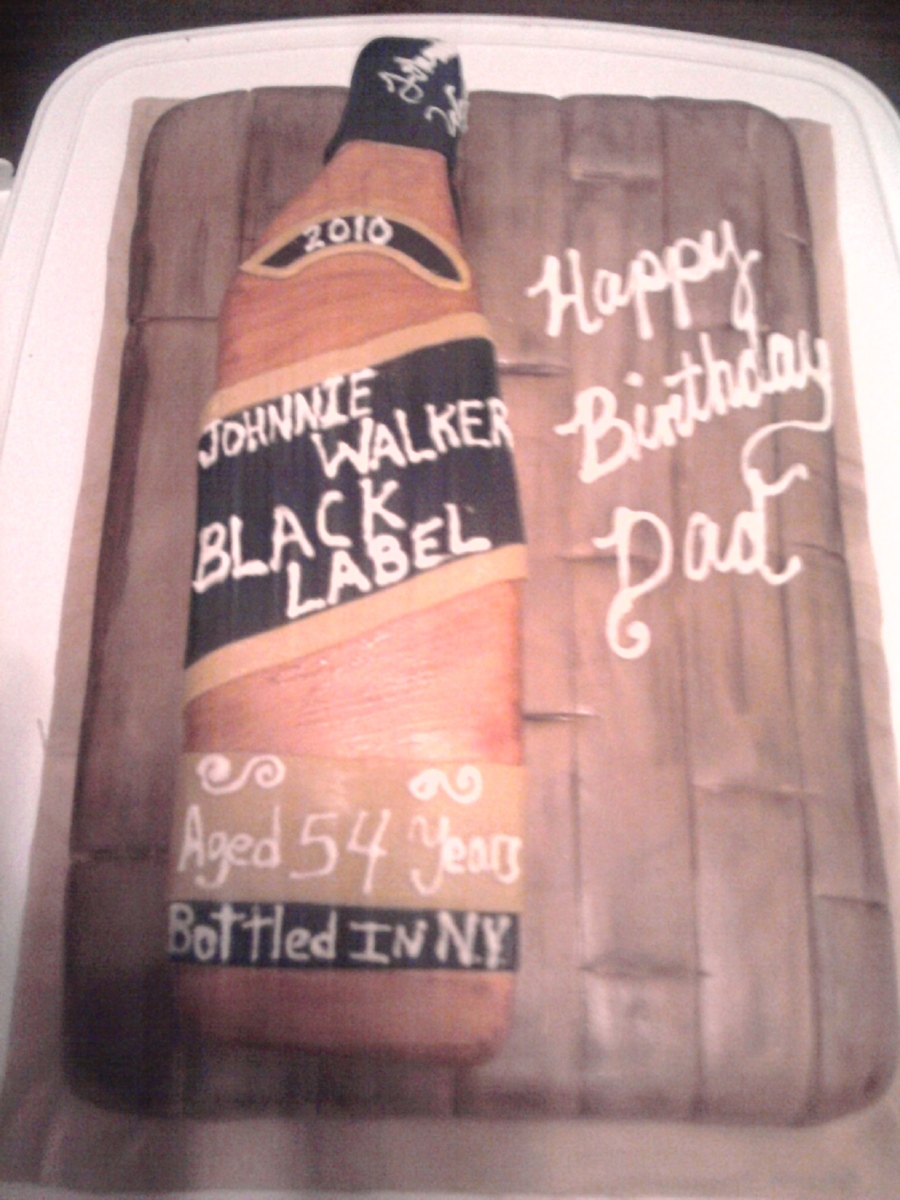 2010
JOHNNIE
WALKER
BLACK
LABEL
Aged 54 Years
Bottled IN N.Y
Happy
Birthday
Dad